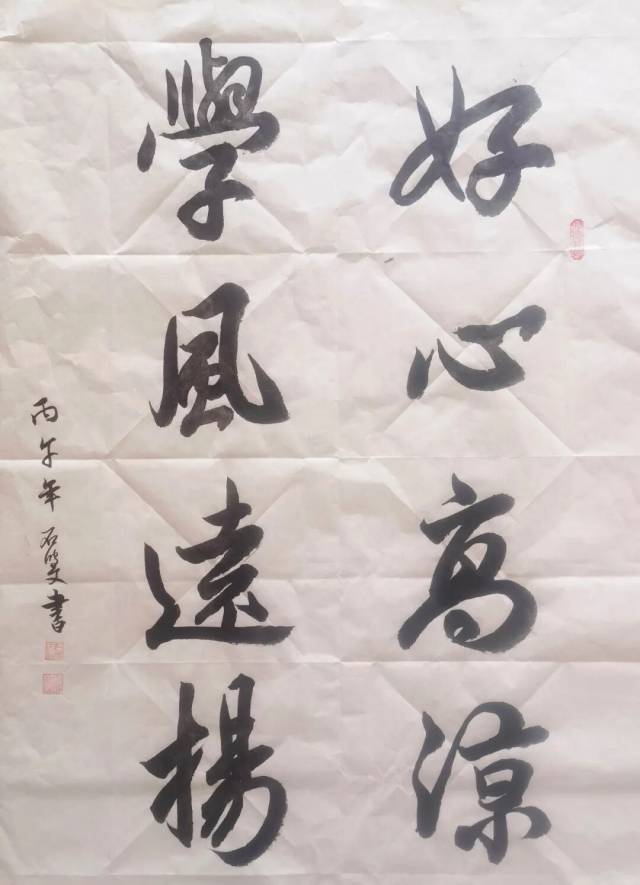 好心高涼
學風遠揚
丙午年石雙書